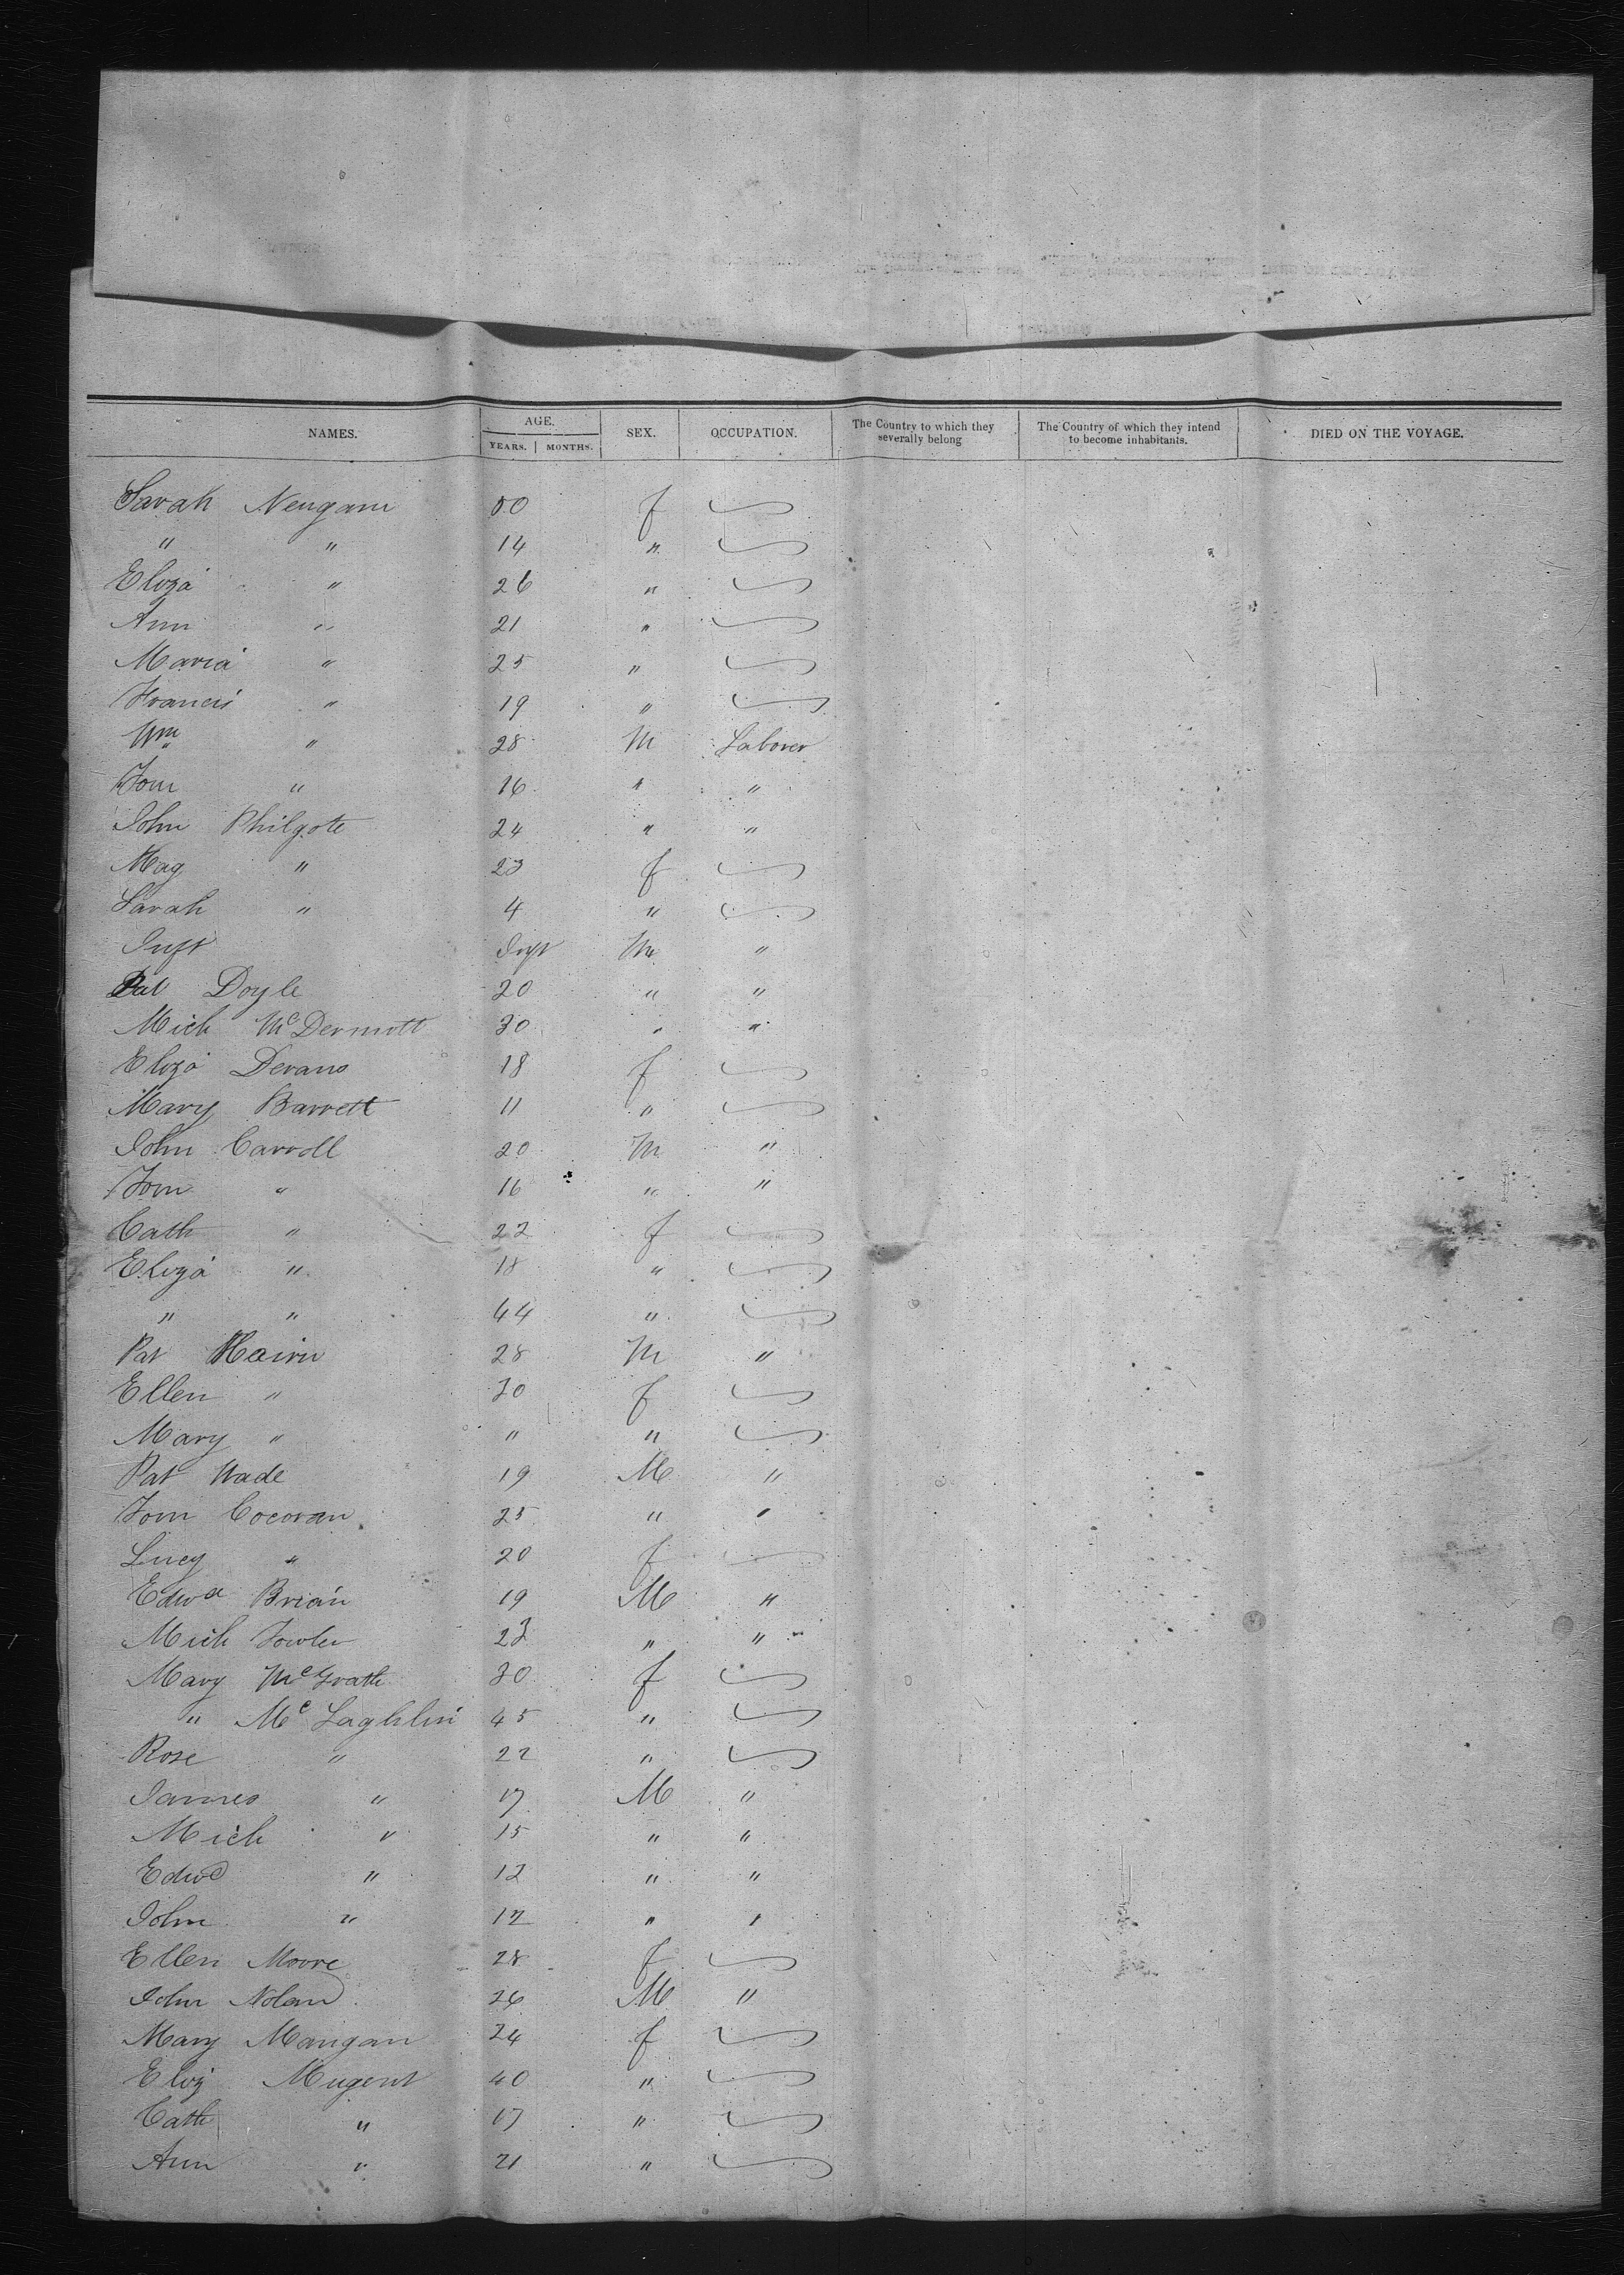 NAMES. AGE. YEARS. MONTHS. SEX. OCCUPATION. The Country to which they severally belong The Country of which they intend to become inhabitants. DIED ON THE VOYAGE.
Sarah Neugam 50 f
" " 14 "
Eliza " 26 "
Ann " 21 "
Maria " 25 "
Francis " 19 "
Wm " 28 M Laborer
Tom " 16 " "
John Philgote 24 " "
Mag " 23 f
Sarah " 4 "
Inft Inft M "
Pat Doyle 20 " "
Mich McDermott 30 " "
Eliza Devans 18 f
Mary Barrett 11 "
John Carroll 20 M "
Tom " 16 " "
Cath " 22 f
Eliza " 18 "
" " 44 "
Pat Hairn 28 M "
Ellen " 30 f
Mary " " "
Pat Wade 19 M "
Tom Cocoran 25 " "
Lucy " 20 f
Edwd Brian 19 M "
Mich Fowler 23 " "
Mary McGrath 30 f
" McLaghlin 45 "
Rose " 22 "
James " 17 M "
Mich " 15 " "
Edwd " 12 " "
John " 12 " "
Ellen Moore 28 f
John Nolan 26 M "
Mary Mangan 24 f
Eliz Mugent 40 "
Cath " 17 "
Ann " 21 "